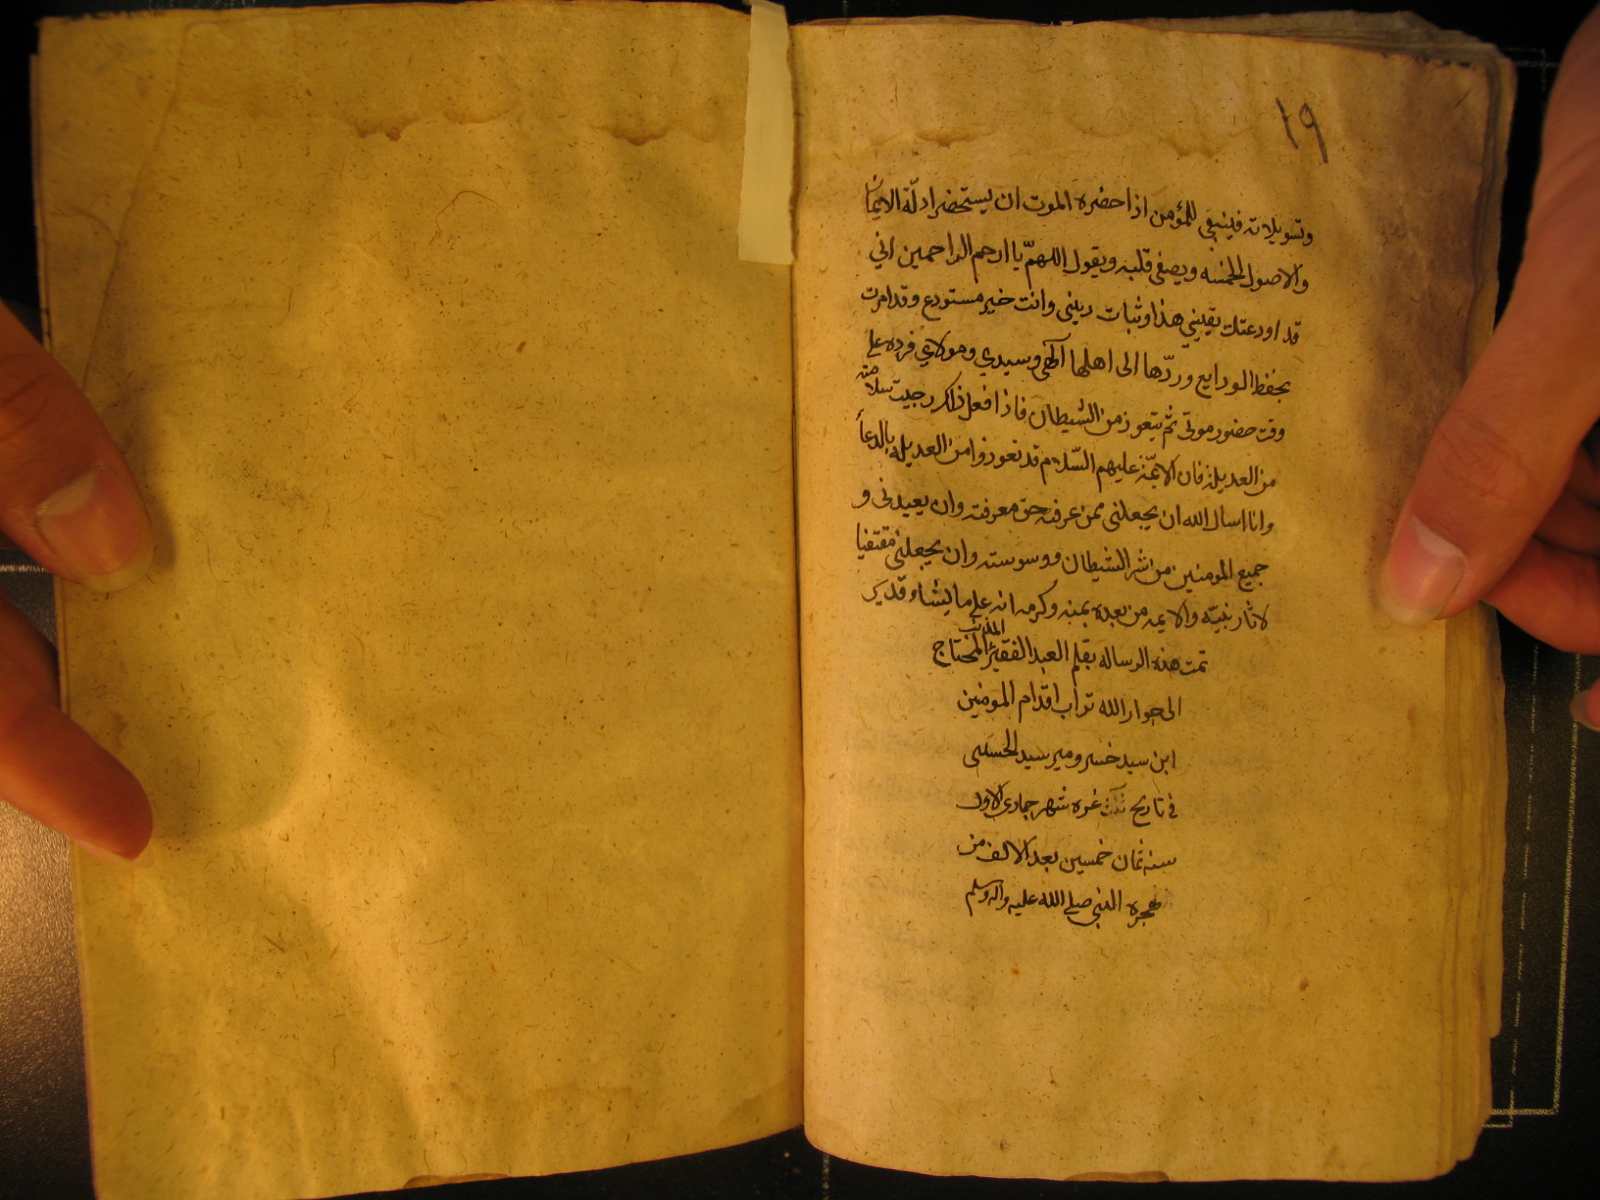 ١٩
وتسويلاته فينبغي للمؤمن اذا حضره الموت ان يستحضر ادلّة الايمان
والاصول الخمسه ويصفى قلبه ويقول اللهمّ يا ارحم الراحمين اني
قد اودعتك يقيني هذا وثبات ديني وانت خير مستودع وقد امرت
بحفظ الودايع وردّها الى اهلها آلهي وسيدي ومولاي فرده على
وقت حضور موتى ثم يتعوذ من الشيطان فاذا فعل ذاكر رجيت سلامته
من العديلة فان الائمّة عليهم السّلام قد تعوذوا من العديله بالدعأ
وانا اسال الله ان يجعلنى ممن عرفه حق معرفته وان يعيدنى و
جميع المومنين من شر الشيطان ووسوسته وان يجعلنى مقتفيا
لاثار نبيّه والايمه من بعده بمنه وكرمه انه على ما يشاء قدير
تمت هذه الرساله بقلم العبد الفقير المذنب المحتاج
الى جوار الله تراب اقدام المومنين
ابن سيد خسرو مير سيد الحسينى
في تاريخ غره شهر جمادى الاول
سنه ثمان خمسين بعد الالف من
هجره النبي صلى الله عليه واله وسلم